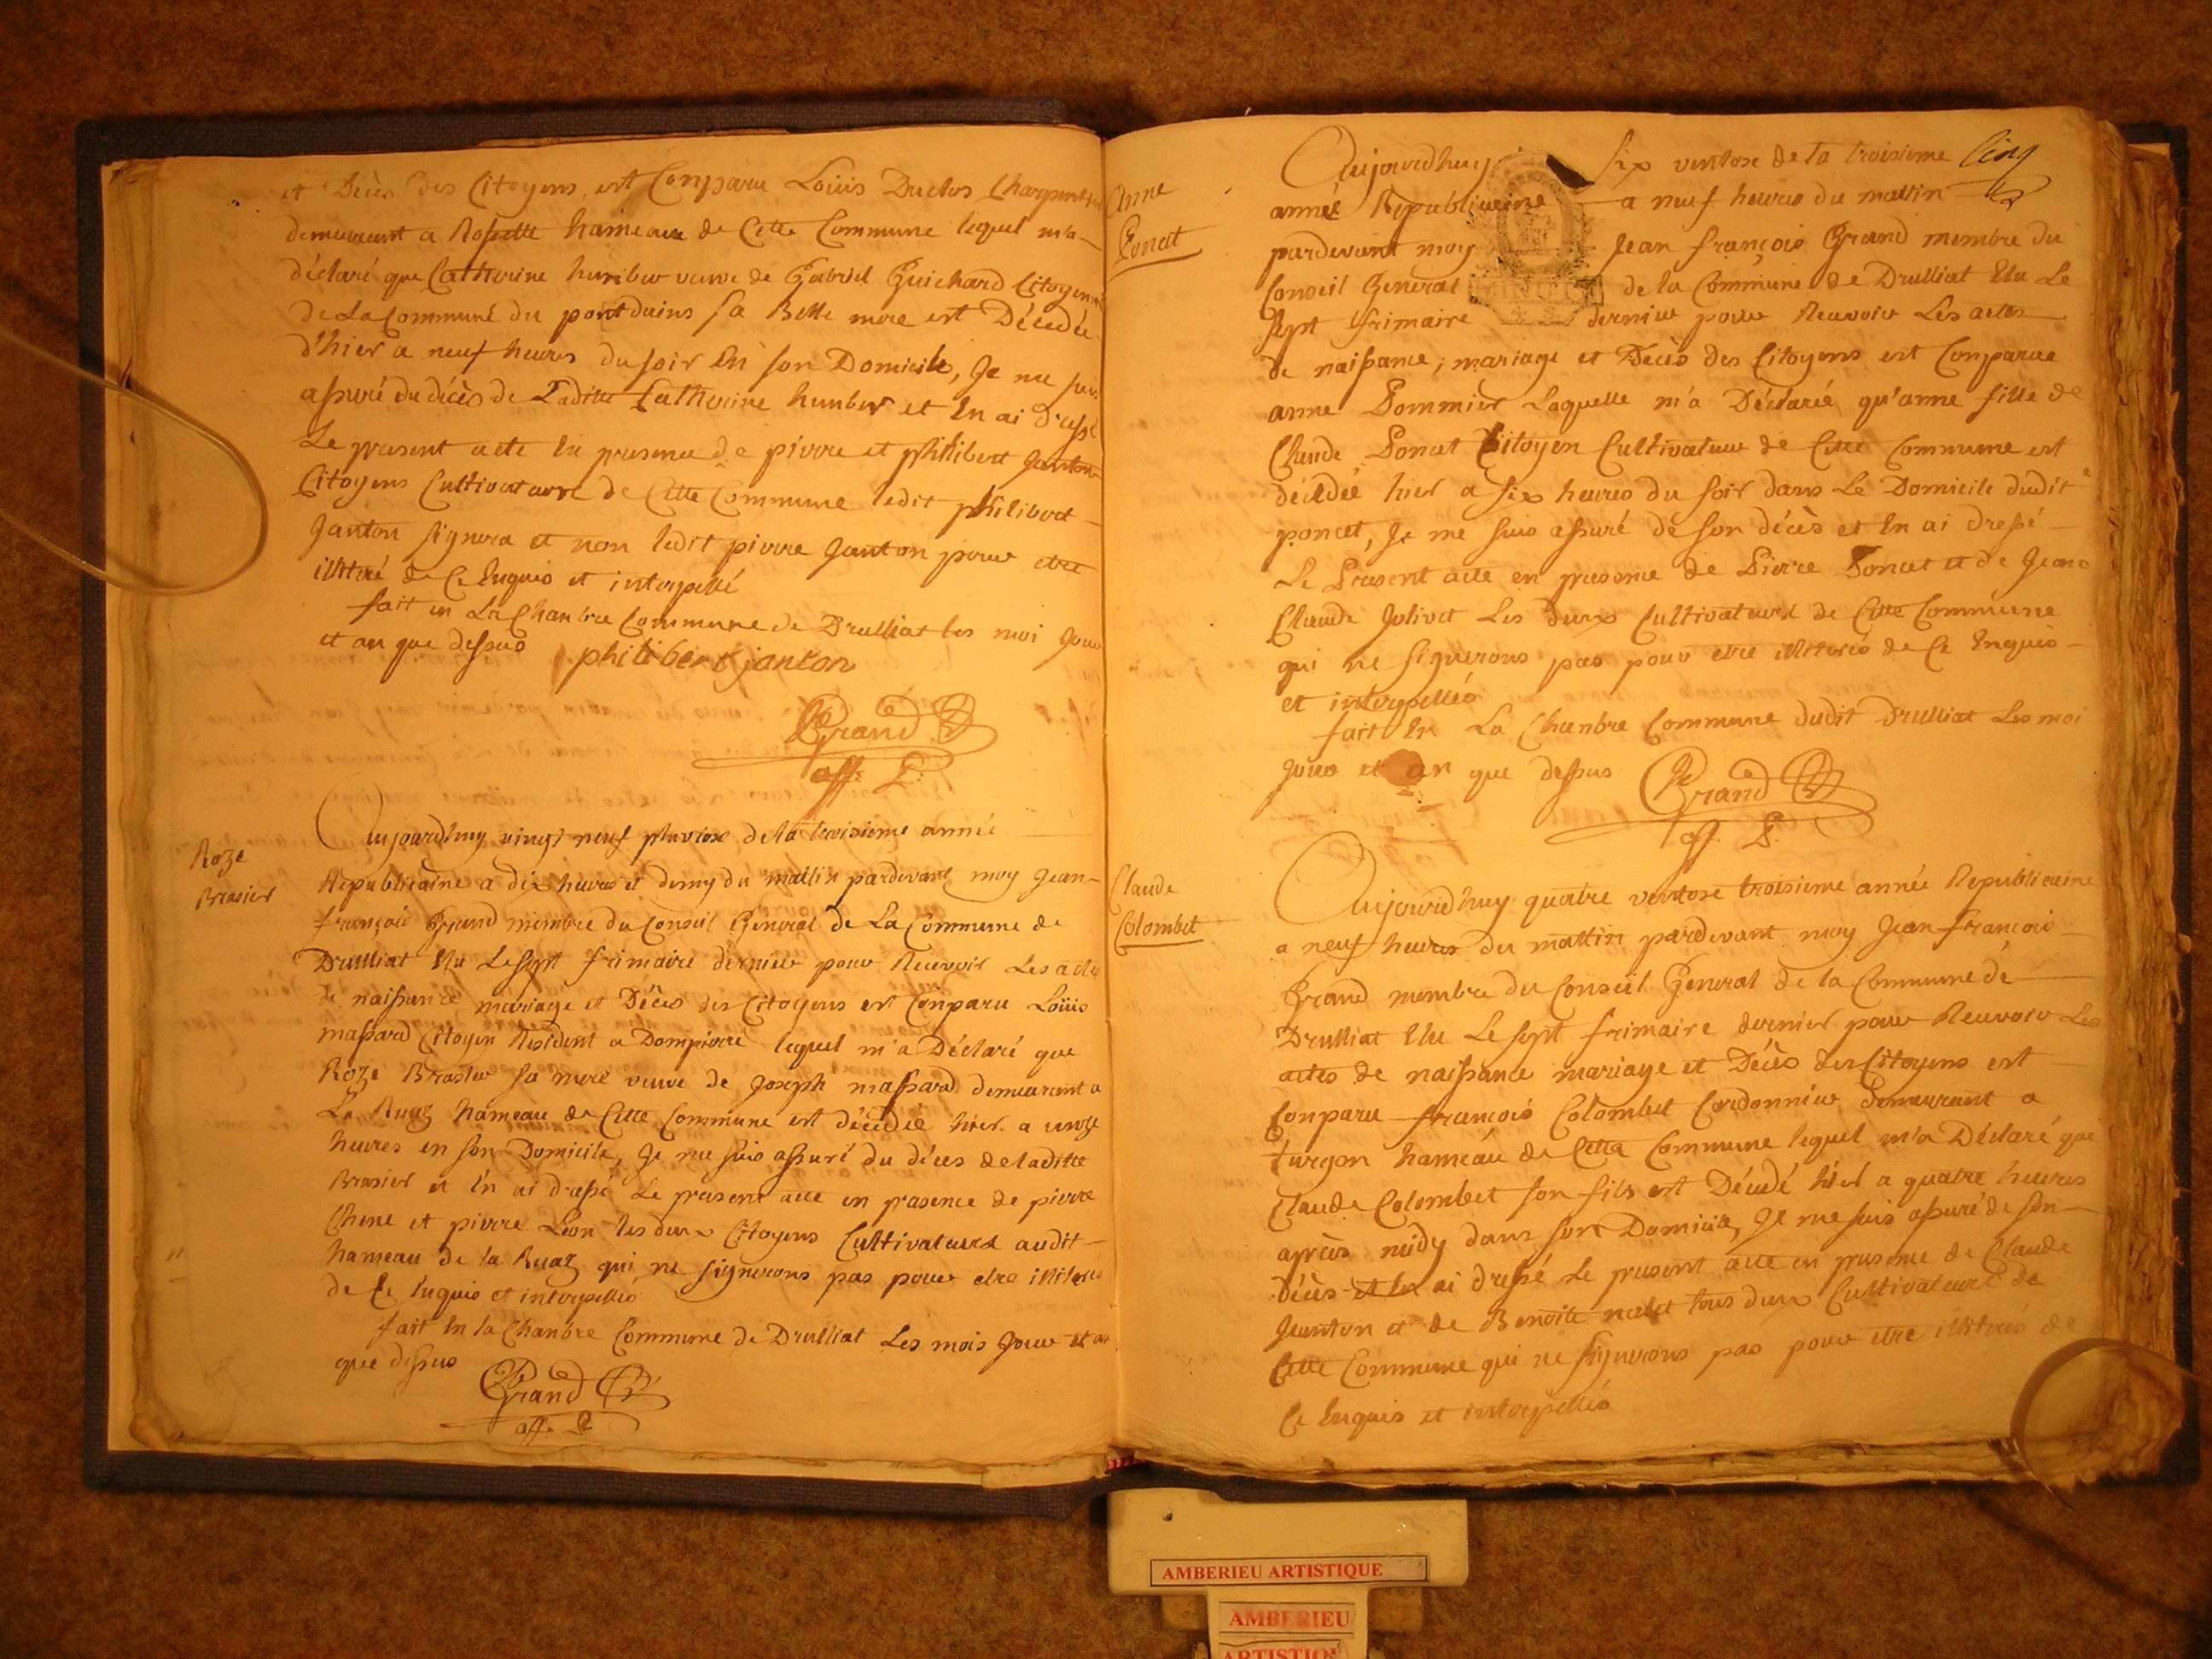 et Décès des Citoyens, est Conparu Loüis Duclos Charpentier
demeurant a Rossette hameaux de Cette Commune lequel m'a
déclaré que Catherine humber veuve de Gabriel Guichard Citoyenne
De La Commune du pontduins sa Belle mere est Décedée
d'hier a neuf heures du soir En son Domicile, Je me suis
assuré du décès de Laditte Catherine humber et En ai dressé
Le present acte En presence de pierre et philibert Janton
Citoyens Cultivateurs de Cette Commune ledit philibert
Janton signera et non ledit pierre Janton pour etre
illiteré de Ce Enquis et interpellé
fait en La Chanbre Commune de Drulliat les moi Jour
et an que dessus philibert janton
Grand
off. P.
Roze
Brasier
Aujourdhuy vingt neuf pluviose de la troisieme année
Republicaine a dix heures et demy du mattin pardevant moy Jean
françois Grand membre du Conseil General de La Commune de
Drulliat Elu Le sept frimaire dernier pour Recevoir Les actes
de naissance mariage et Décès des Citoyens est Conparu Loüis
massard Citoyen Resident a Dompierre lequel m'a Déclaré que
Roze Brasier sa mere veuve de Joseph massard demeurant a
La Ruaz hameau de Cette Commune est décedée hier a unze
heures en son Domicile, Je me suis assuré du déces de laditte
Brasier et En ai dressé Le present acte en presence de pierre
Chene et pierre Léon les deux Citoyens Cultivateurs audit
hameau de la Ruaz qui ne signerons pas pour etre illiterés
de Ce Enquis et interpellés
fait En la Chanbre Commune de Drulliat Les mois Jour et an
que dessus Grand
off. P.
Cinq
Anne
Poncet
Aujourdhuy six ventose de la troisieme
année Republiceine a neuf heures du mattin
pardevant moy Jean françois Grand membre du
Conseil General de la Commune de Drulliat Elu Le
sept frimaire dernier pour Recevoir Les actes
de naissance, mariage et Décès des Citoyens est Conparue
anne Pommier Laquelle m'a Déclarée qu'anne fille de
Claude Poncet Citoyen Cultivateur de Cette Commune est
décédée hier a six heures du soir dans Le Domicile dudit
poncet, Je me suis assuré de son décès et En ai dressé
Le Present acte en presence de Pierre Poncet et de Jean
Claude Jolivet Les deux Cultivateurs de Cette Commune
qui ne signerons pas pour etre illiterés de Ce Enquis
et interpellés
fait En La Chanbre Commune dudit Drulliat Les moi
Jours et an que dessus Grand
off. P.
Claude
Colombet
Aujourdhuy quatre ventose troisieme année Republicaine
a neuf heures du mattin pardevant moy Jean françois
Grand membre du Conseil General de la Commune de
Drulliat Elu Le sept frimaire dernier pour Recevoir Les
actes de naissance mariage et Décès des Citoyens est
Conparu françois Colombet Cordonnier demeurant a
turgon hameau de Cette Commune lequel m'a Déclaré que
Claude Colombet son fils est Décedé hier a quatre heures
après midy dans son Domicile, Je me suis assuré de son
décès et En ai dressé Le present acte en presence de Claude
Janton et de Benoite tous deux Cultivateurs de
Cette Commune qui ne signerons pas pour etre illiterés de
Ce Enquis et interpellés
AMBERIEU ARTISTIQUE
AMBERIEU
ARTISTIQUE